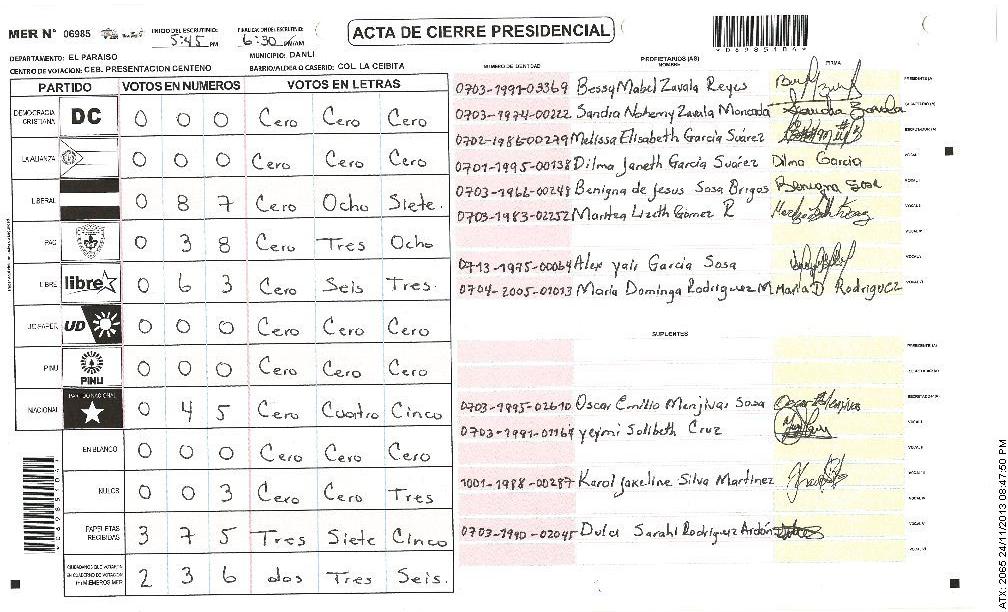 MER N° 06985
INICIO DEL ESCRUTINIO: 5:45 PM
FINALIZACION DEL ESCRUTINIO: 6:30 PM/AM
ACTA DE CIERRE PRESIDENCIAL
DEPARTAMENTO: EL PARAISO
MUNICIPIO: DANLI
CENTRO DE VOTACION: CEB. PRESENTACION CENTENO
BARRIO/ALDEA O CASERIO: COL LA CEIBITA
PARTIDO VOTOS EN NUMEROS VOTOS EN LETRAS
DEMOCRACIA CRISTIANA DC 0 0 0 Cero Cero Cero
LA ALIANZA 0 0 0 Cero Cero Cero
LIBERAL 0 8 7 Cero Ocho Siete.
PAC 0 3 8 Cero Tres Ocho
LIBRE libre 0 6 3 Cero Seis Tres.
UD FAPER UD 0 0 0 Cero Cero Cero
PINU PINU 0 0 0 Cero Cero Cero
NACIONAL PARTIDO NACIONAL 0 4 5 Cero Cuatro Cinco
EN BLANCO 0 0 0 Cero Cero Cero
NULOS 0 0 3 Cero Cero Tres
PAPELETAS RECIBIDAS 3 7 5 Tres Siete Cinco
CIUDADANOS QUE VOTARON EN CUADERNO DE VOTACION MIEMBROS MER 2 3 6 dos Tres Seis.
PROPIETARIOS (AS)
NUMERO DE IDENTIDAD NOMBRE FIRMA
0703-1991-03369 Bessy Mabel Zavala Reyes PRESIDENTE(A)
0703-1974-00222 Sandra Nohemy Zavala Moncada Sandra Zavala SECRETARIO(A)
0702-1986-00279 Melissa Elisabeth García Suárez ESCRUTADOR(A)
0701-1995-00138 Dilma Janeth García Suárez Dilma Garcia VOCAL I
0703-1966-00248 Benigna de Jesus Sosa Brigas Benigna Sosa
0703-1983-02252 Maritza Lizeth Gomez R
0713-1975-00064 Alex yair García Sosa
0704-2005-01013 María Dominga Rodriguez M Maria D Rodriguez
SUPLENTES
PRESIDENTE (A)
0703-1995-02610 Oscar Emilio Menjivas Sosa
0703-1991-01164 yejmi Solibeth Cruz
1001-1988-00287 Karol Jakeline Silva Martinez
0703-1990-02045 Dulce Sarahi Rodriguez Ardón
ATX: 2065 24/11/2013 08:47:50 PM